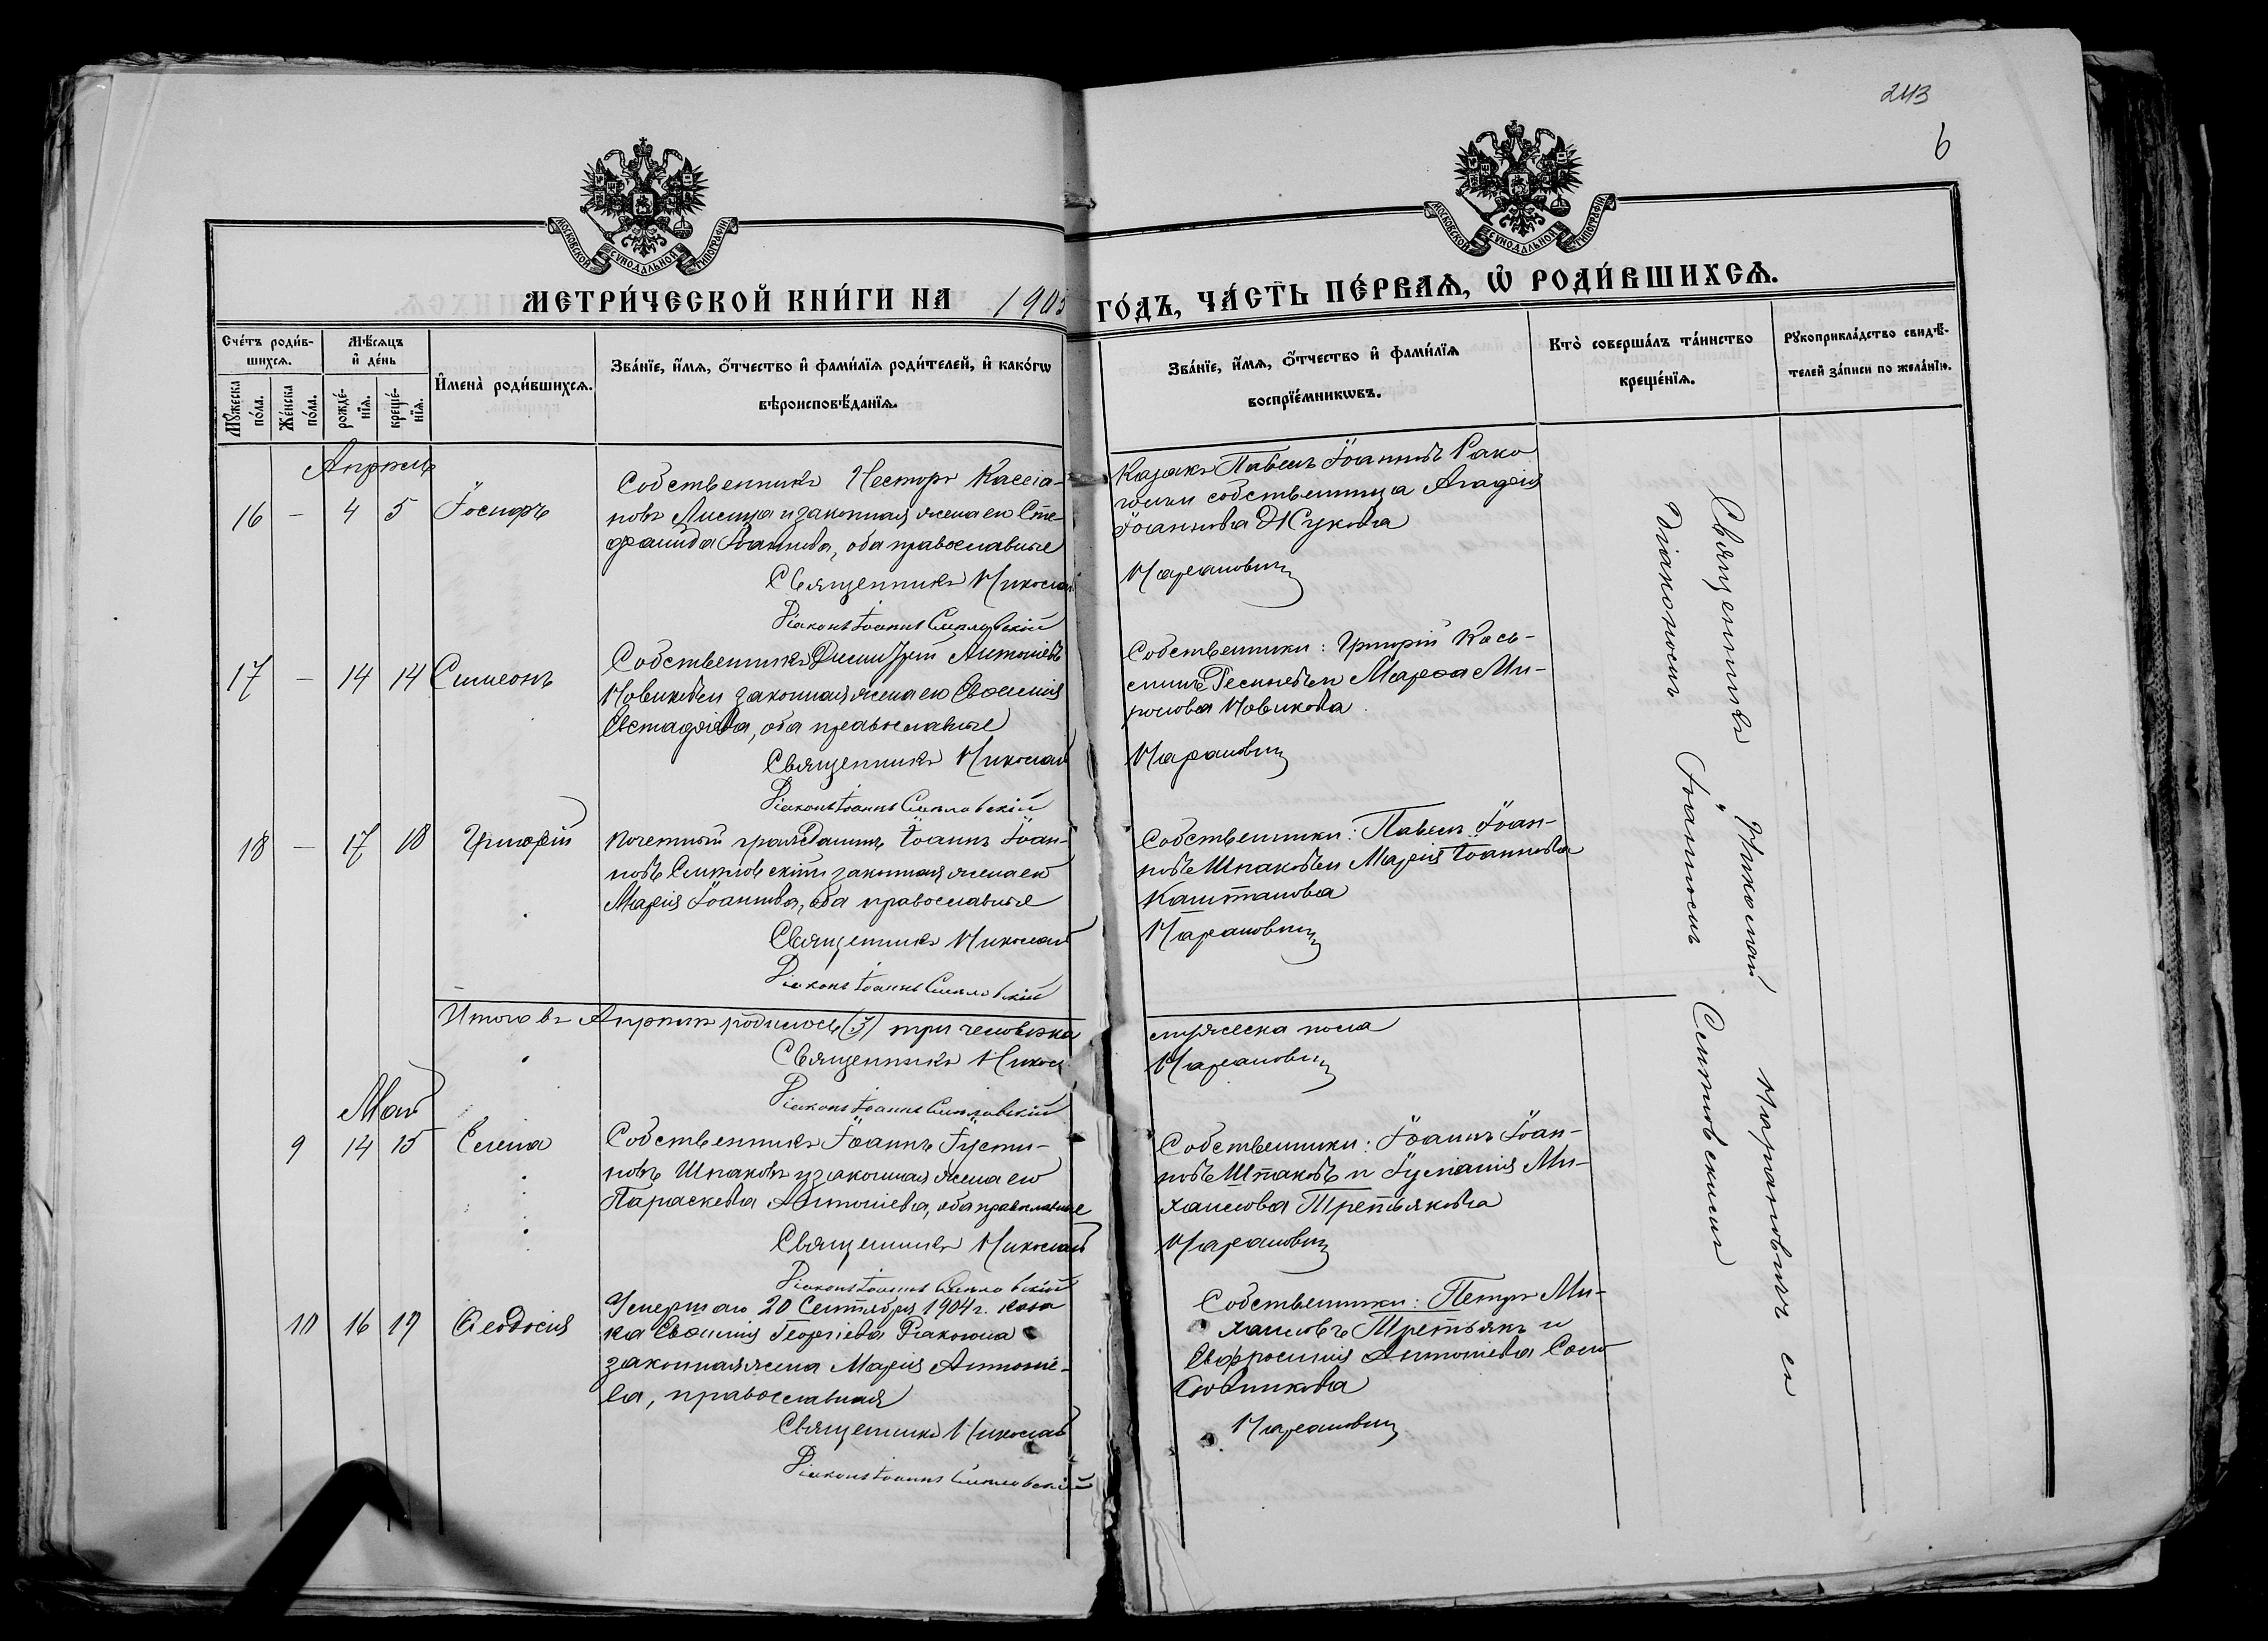 243
6
МОСКОВСКОЙ СѴНОДАЛЬНОЙ ТИПОГРАФІИ
МОСКОВСКОЙ СѴНОДАЛЬНОЙ ТИПОГРАФІИ
МЕТРИ́ЧЕСКОЙ КНИ́ГИ НА 1905
ГО́ДЪ, ЧА́СТЬ ПЕ́РВАѦ, Ѡ҆ РОДИ́ВШИХСѦ.
Сче́тъ роди́в-
шихсѧ.
Мѹ́жеска по́ла.
Же́нска по́ла.
Мѣ́сѧцъ
и҆ де́нь
рожде́-
нїѧ.
креще́-
нїѧ.
И҆мена̀ роди́вшихсѧ.
Зва́нїе, и҆́мѧ, ѻ҆́тчество и҆ фами́лїѧ роди́телей, и҆ како́гѡ
вѣроисповѣ́данїѧ.
Зва́нїе, и҆́мѧ, ѻ҆́тчество и҆ фами́лїѧ
воспрїе́мникѡвъ.
Кто̀ соверша́лъ та́инство
креще́нїѧ.
Рꙋкоприкла́дство свидѣ́-
телей за́писи по жела́нїю.
Апрѣль
16 – 4 5 Іосифъ
Собственникъ Несторъ Кассіа-
новъ Лисица и законная жена его Сте-
фанида Іоаннова, оба православные
Священникъ Николай
Діаконъ Іоаннъ Смѣловскій
Казакъ Павелъ Іоанновъ Рако
Іоаннова Жукова
Марановичъ
17 – 14 14 Симеонъ
Собственникъ Димитрій Антоніевъ
Новиковъ и законная жена его Евфимія
Евстафіева, оба православные
Священникъ Николай
Діаконъ Іоаннъ Смѣловскій
Собственники: Григорій Кось-
минъ и Марфа Ми-
ронова Новикова.
Марановичъ
18 – 17 18 Григорій
Почетный гражданинъ Іоаннъ Іоан-
новъ Смѣловскій и законная жена его
Марія Іоаннова, оба православные
Священникъ Николай
Діаконъ Іоаннъ Смѣловскій
Собственники: Павелъ Іоан-
новъ Шпаковъ и Марія Іоаннова
Каштанова
Марановичъ
Итого въ Апрѣлѣ родилось (3) три человѣка
мужеска пола
Священникъ Никол
Марановичъ
Діаконъ Іоаннъ Смѣловскій
Май
9 14 15 Елена
Собственникъ Іоаннъ Іусти-
новъ Шпаковъ и законная жена его
Параскева Антоніева, оба православные
Священникъ Николай
Діаконъ Іоаннъ Смѣловскій
Собственники: Іоаннъ Іоан-
новъ Шпаковъ и Іуліанія Ми-
хаилова Третьякова
Марановичъ
10 16 19 Ѳеодосія
Умершаго 20 Сентября 1904 г. каза
ка Евфимія Георгіева Ракоюма
законная жена Марія Антоніе-
ва, православная
Священникъ Николай
Діаконъ Іоаннъ Смѣловскій
Собственники: Петръ Ми-
хаиловъ Третьякъ и
Евфросинія Антоніева
Марановичъ
Священникъ Николай Марановичъ съ
Діакономъ Іоанномъ Смѣловскимъ